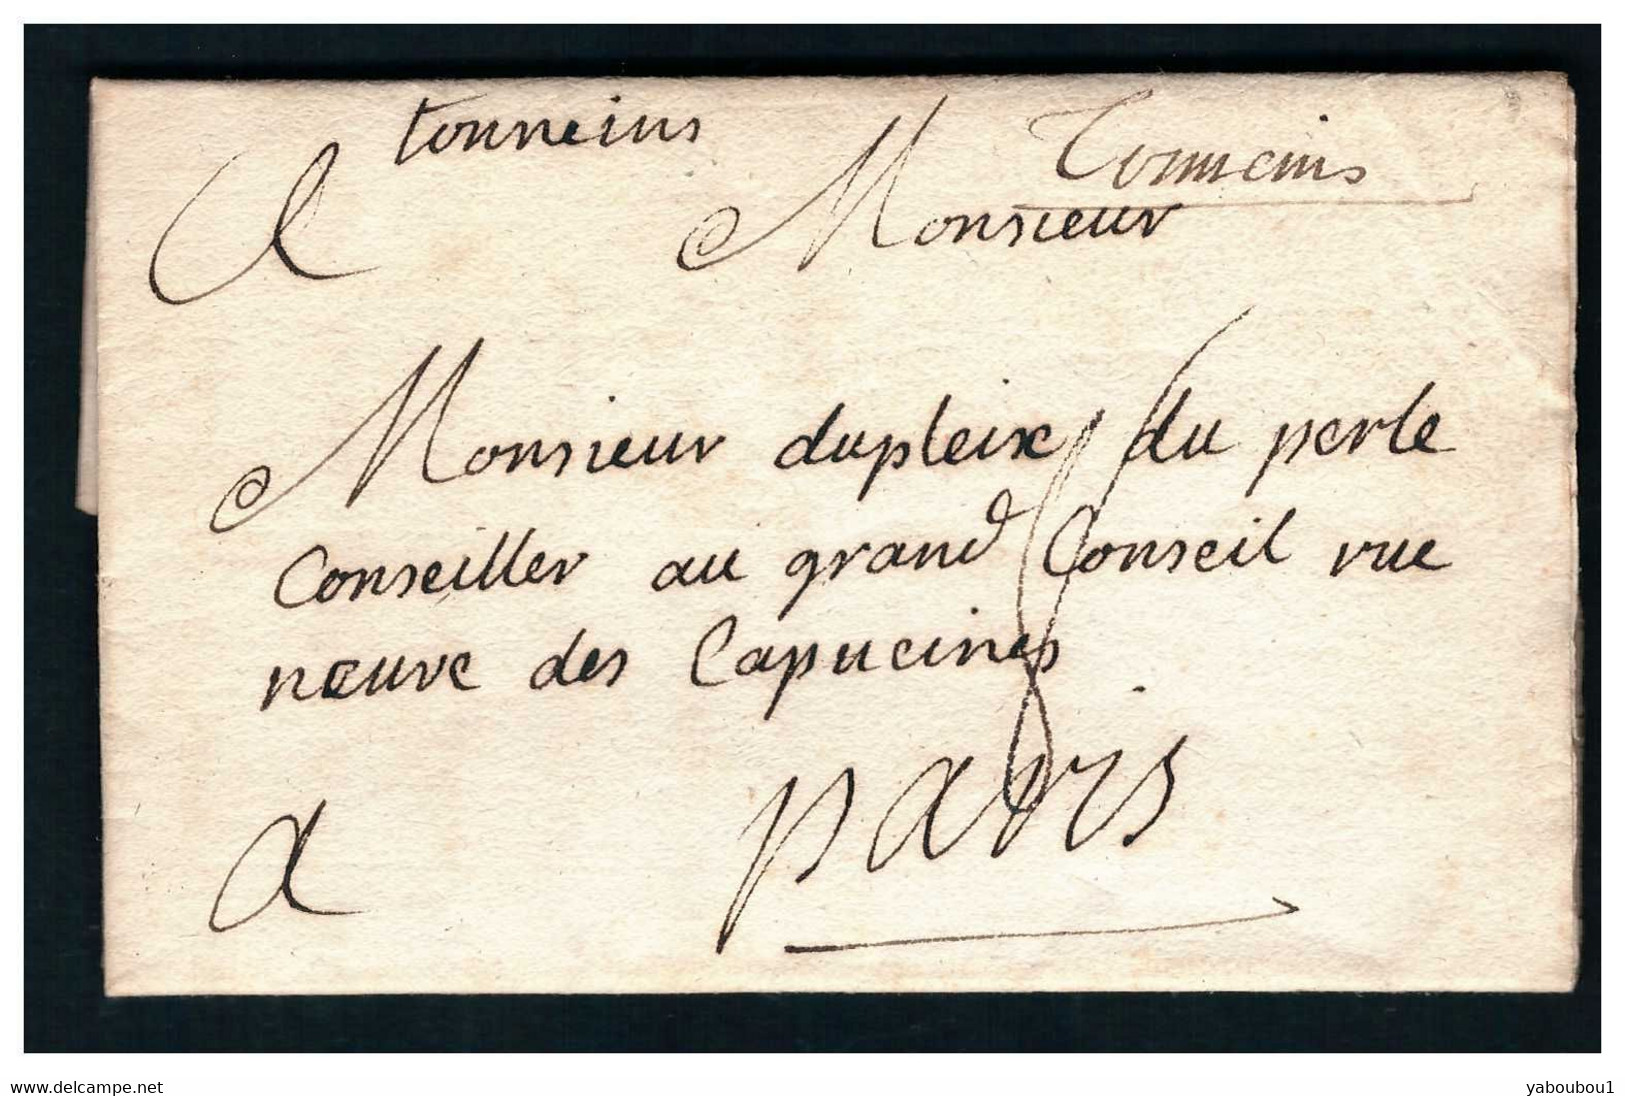 A tonneins Tonneins
Monsieur
Monsieur dupleix du perle
Conseiller au grand Conseil rue
neuve des Capucines
a paris
www.delcampe.net
yaboubou1